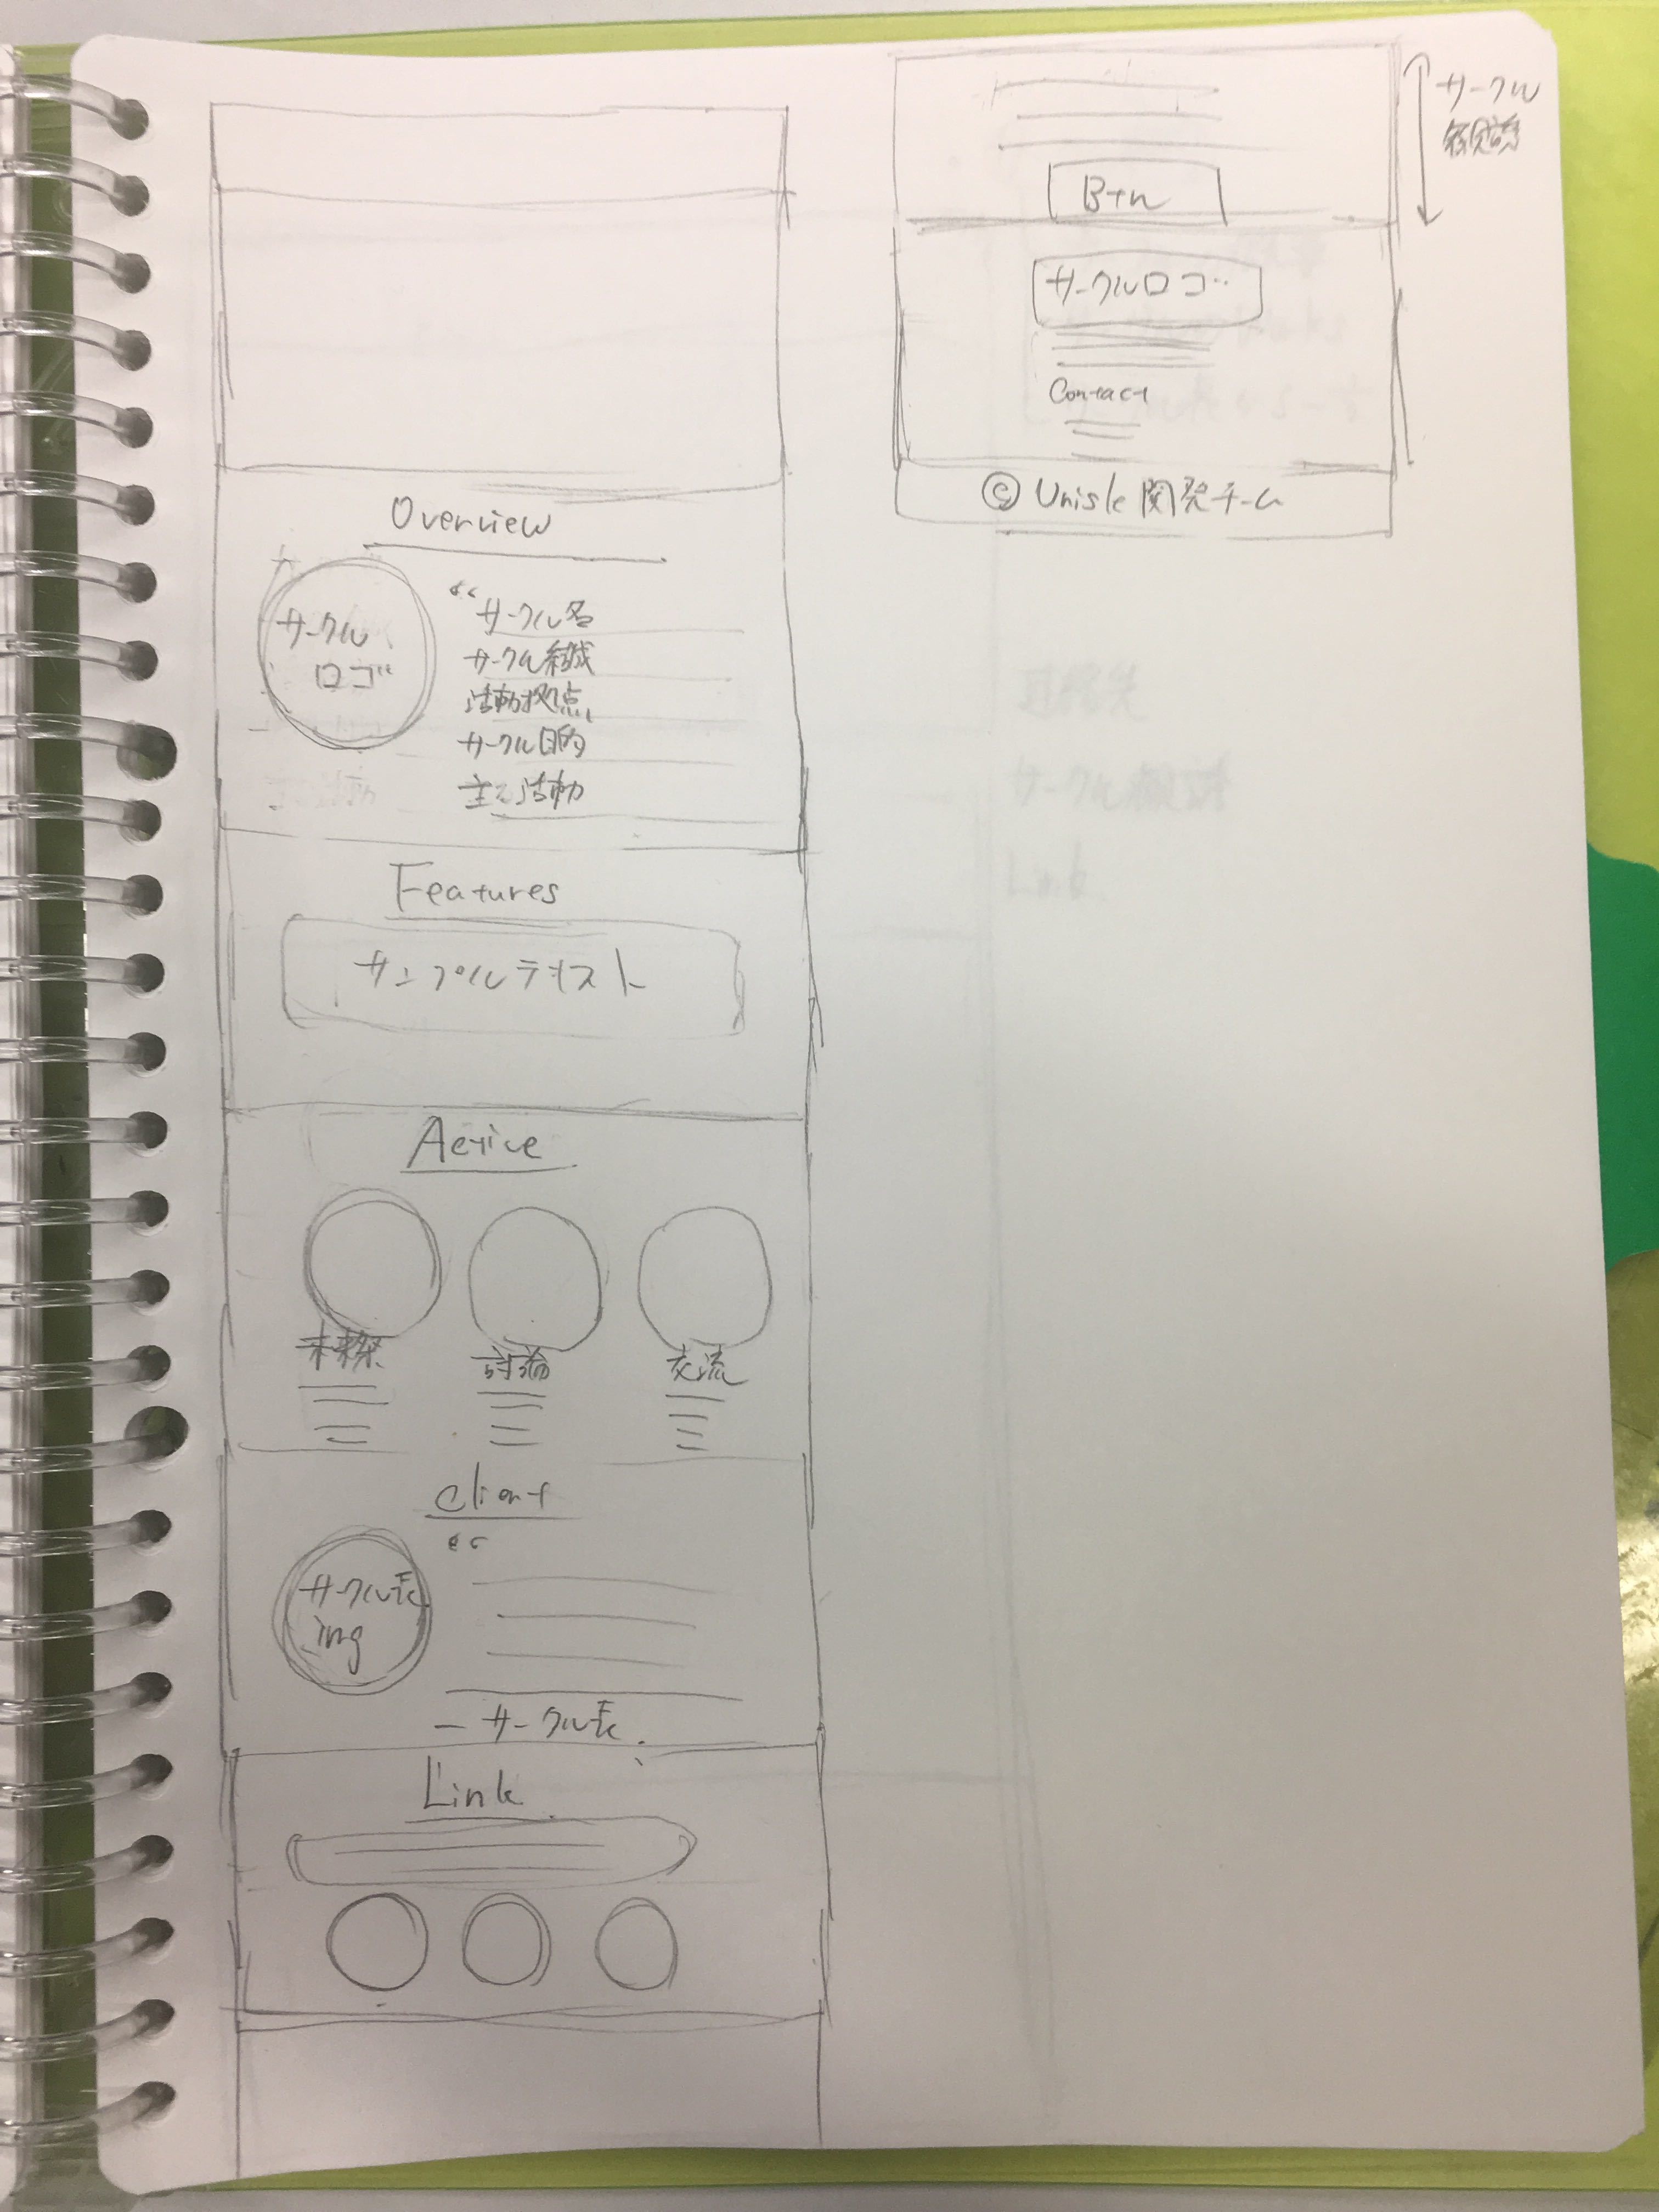 Overview
サークル
ロゴ
“サークル名
サークル組織
活動拠点
サークル目的
主な活動
Features
サンプルテキスト
Active
討論
交流
Client
“
サークル長
img
ー サークル長
Link
サークル
Btn
サークルロゴ
Contact
© Unisle 関発チーム
サークル
Link